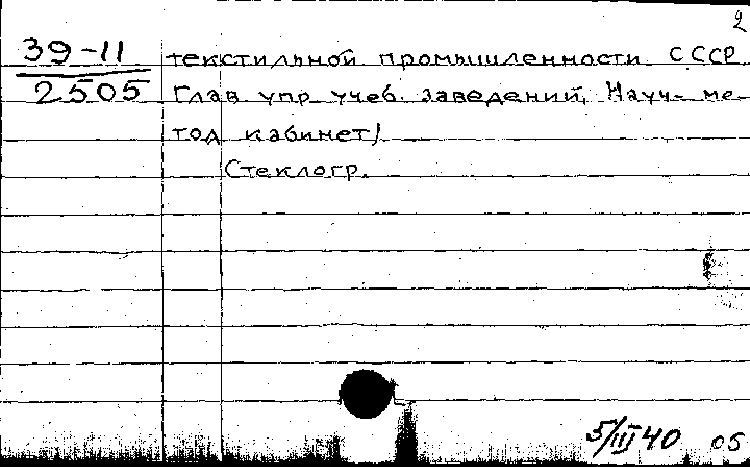 2
39-11
2505
текстильной промышленности СССР
Глав упр учеб. заведений, Науч- ме-
тод кабинет/
Стеклогр.
5/III 40 05